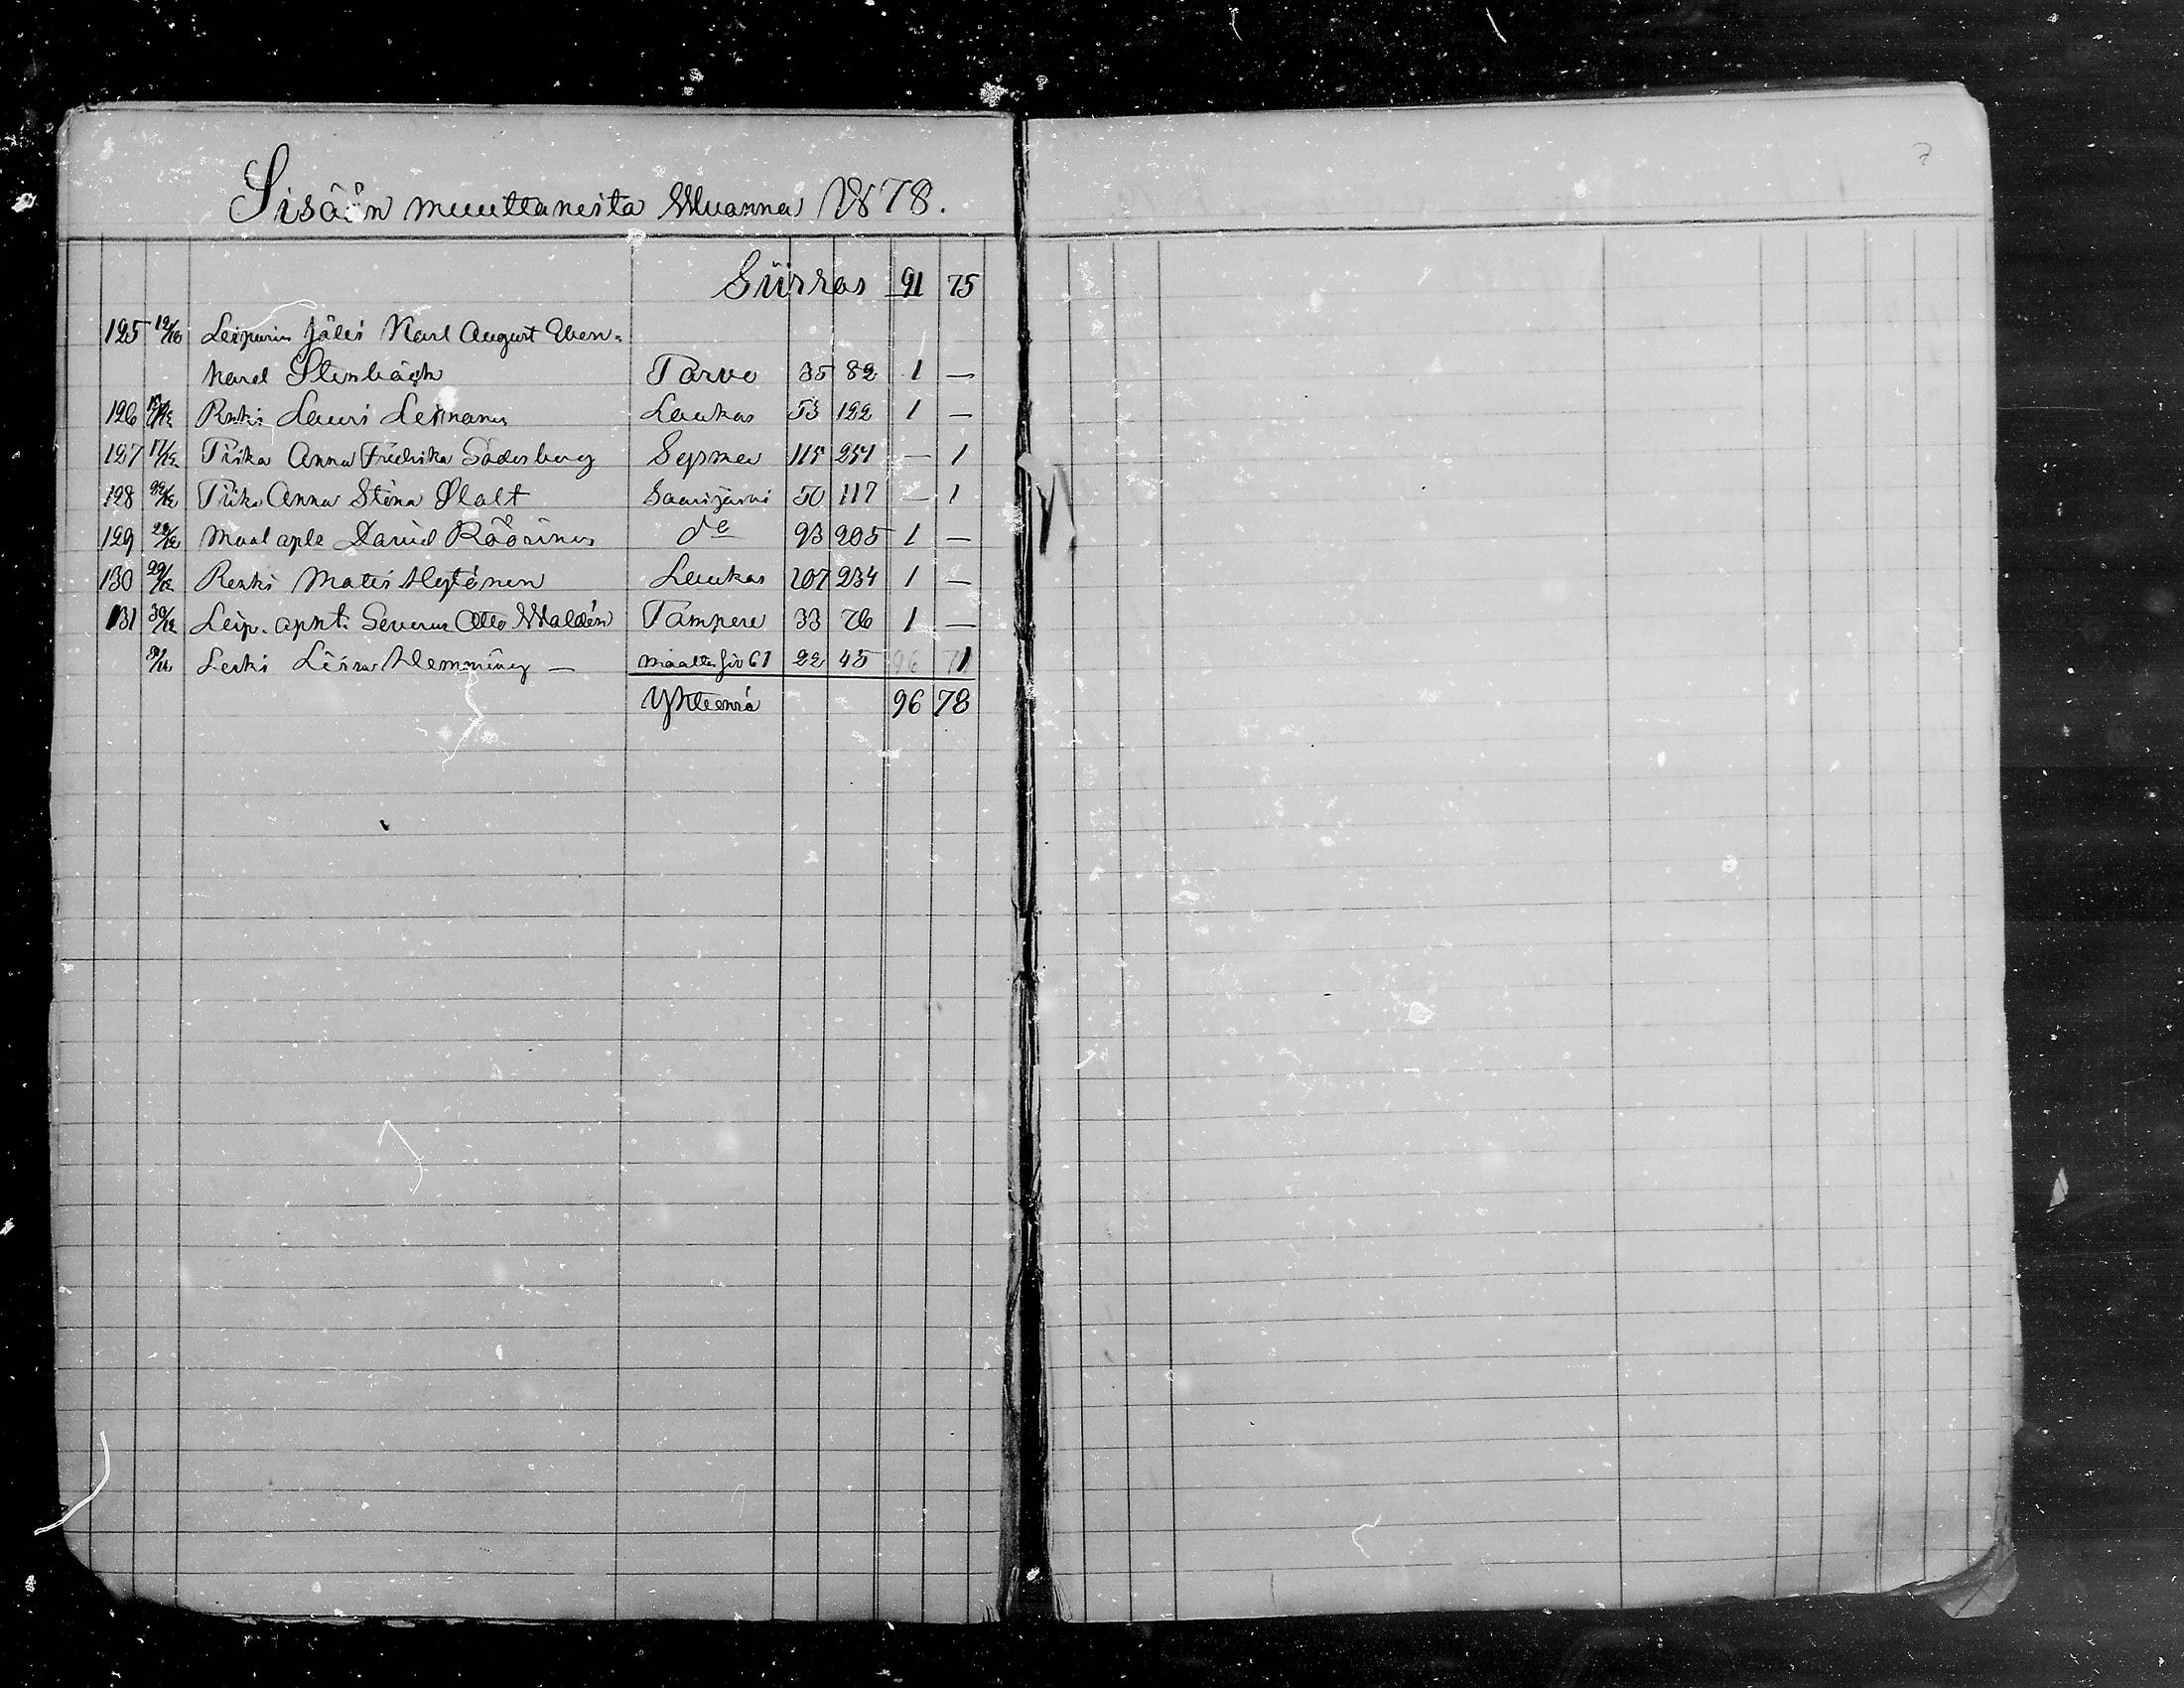 7
Sisään muuttaneita Wuonna 1878.
Siirros 91 75
125 Leipurin sälli Karl August Eben-
hard Stenbäck Porvo 35 82 1 —
126 Renki Lauri Leinanen Laukas 53 122 1 —
127 17/12 Piika Anna Fredrika Söderberg Sysmä 115 254 — 1
128 Piika Anna Stina Stalt Saarijärvi 50 117 — 1
129 Maal aple David Röörinen do 93 205 1 —
130 29/12 Renki Mats Hytönen Laukas 107 234 1 —
131 30/12 Leip. apnt. Severus Otto Waldén Tampere 33 76 1 —
Leski Liisa Flemming — maalta siv 61 22 45 96 1
Yhteensä 96 78